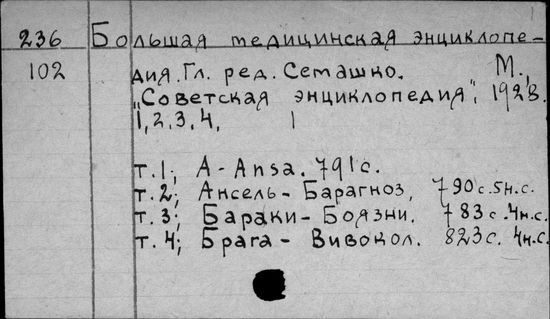 1
236 Большая медицинская энциклопе-
102 дия. Гл. ред. Семашко. М.,
„Советская энциклопедия", 1928.
1, 2, 3, 4, 1
т. 1; А - Ansa. 791 с.
т. 2; Ансель - Барагноз, 790 с. 5н. с.
т. 3; Бараки - Боязни. 783 с. 4н. с.
т. 4; Брага - Вивокол. 823 с. 4н. с.